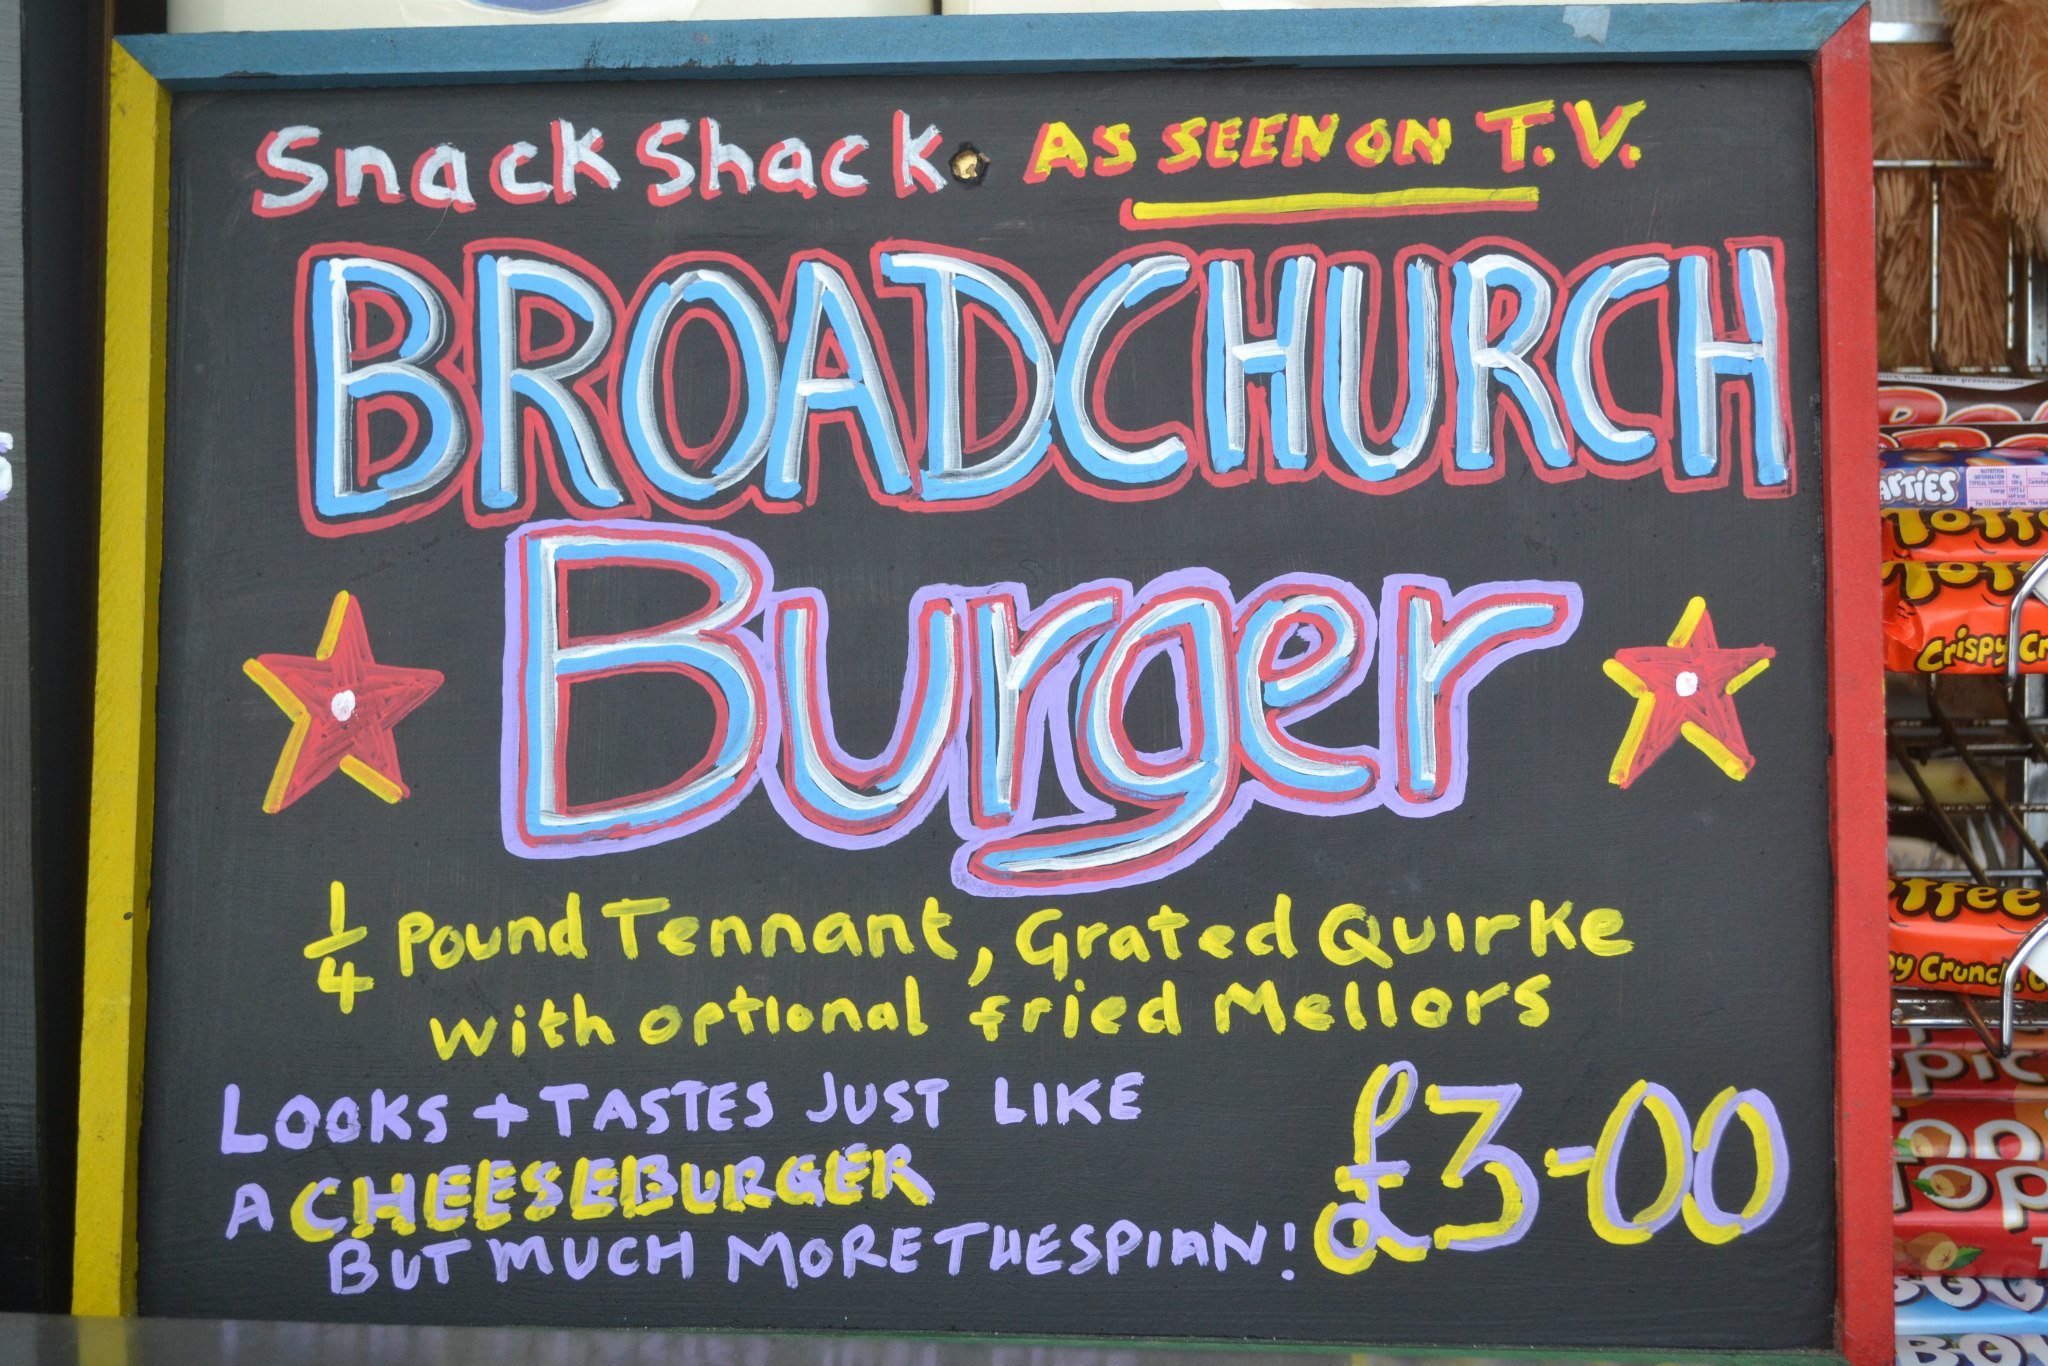 Snack Shack. AS SEEN ON T.V.
BROADCHURCH
Burger
1/4 Pound Tennant, Grated Quirke
with optional fried Mellors
LOOKS + TASTES JUST LIKE
A CHEESEBURGER
BUT MUCH MORE THESPIAN!
£3-00
ARTIES
Toffe
Toff
Crispy Cr
offee
py Crunch
opic
Top